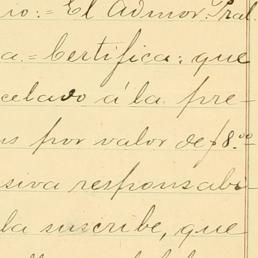 io:= El Admor. Pral.
a.= Certifica: que
celado á la pre-
s por valor de $8.00
siva responsabi-
la suscribe, que